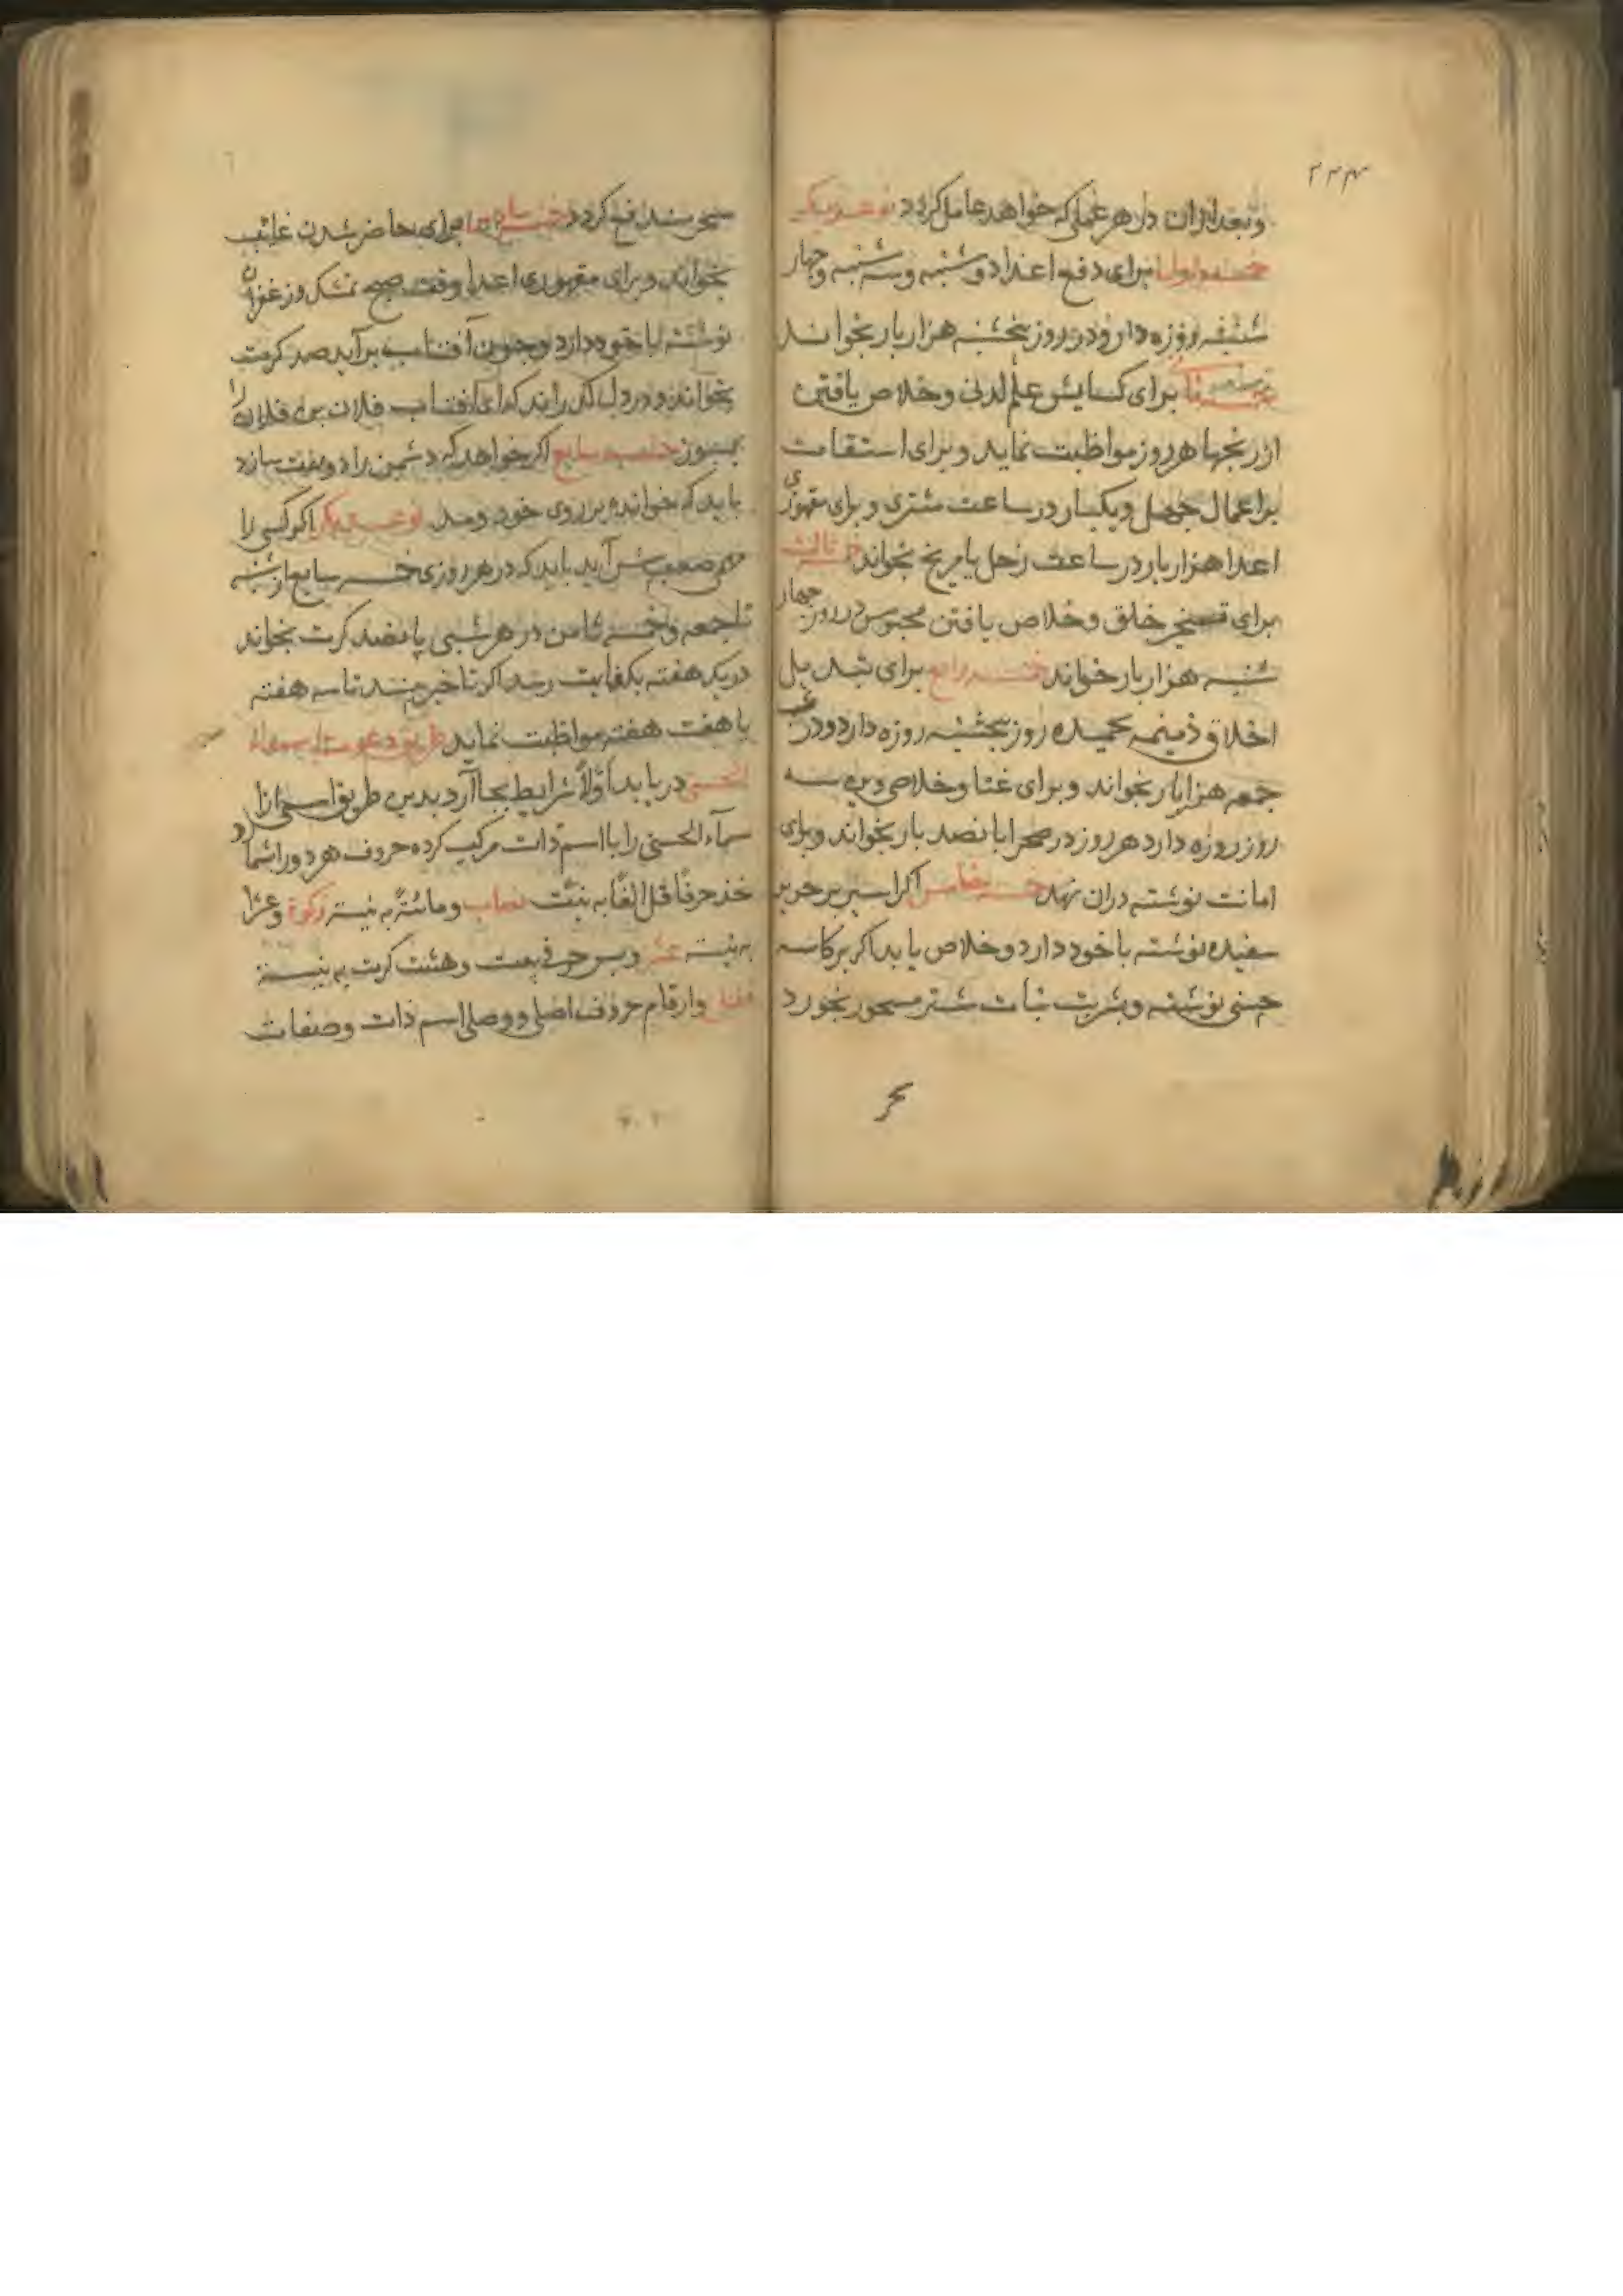 ۲۴۳
و بعد ازان در هر عملی که خواهد عامل کردد نوعدیکر
خمسه اولی برای دفع اعدا دوشنبه و سه شنبه و چهار
شنبه روزه دارد و در روز پنجشنبه هزار بار بخواند
برای کشایش علم لدنی و خلاص یافتن
از رنجها هر روز مواظبت نماید و برای استقامت
بر اعمال چهل و یکبار در ساعت مشتری و برای مقهوری
اعدا هزار بار در ساعت زحل یا مریخ بخواند ثالث
برای تسخیر خلق و خلاص یافتن محبوس در روز چهار
شنبه هزار بار خواند خمسه رابع برای تبدیل
اخلاق ذمیمه بحمیده روز پنجشنبه روزه دارد و در شب
جمعه هزار بار بخواند و برای غنا و خلاصی دین سه
روز روزه دارد هر روز در صحرا پانصد بار بخواند و برای
امانت نوشته دران نهد خمسه خامس اکر اسیر بر حریر
سفیده نوشته با خود دارد خلاص یابد اکر بر کاسه
چینی نوشته و بشربت نبات شسته مسحور بخورد
سحر
سحر دفع کردد برای حاضر شدن غایب
بخواند و برای مقهوری اعدا وقت صبح بمشک و زعفران
نوشته با خود دارد و چون آفتاب بر آید صد کرت
بخواند و در دل کذراند که ای آفتاب فلان بن فلان را
بسوز خمسه سابع اکر خواهد که دشمن را دوست سازد
باید که خوانده بر روی خود دمد نوعدیکر اکر کسی را
مهم صعب پیش آید باید که در هر روزی خمسه سابع از شنبه
تا جمعه و خمسه ثامن در هر شبی پانصد کرت بخواند
در یک هفته بکفایت رسد اکر تاخیر بیند تا سه هفته
یا هفت هفته مواظبت نماید طریق دعوت اسماء
الحسنی دریابد اولا شرایط بجا آرد بدین طریق اسمی از ا
سمآء الحسنی را با اسم ذات مرکب کرده حروف هر دو را شمارد
خذ حرفا قل الفا به نیت نصاب و مائتة به نیته زکوة و عشرا
به نیته عشر و بر حرفی بیست و هشت کرت به نیت
قفل و ارقام حروف اصلی و وصلی اسم ذات و صفات